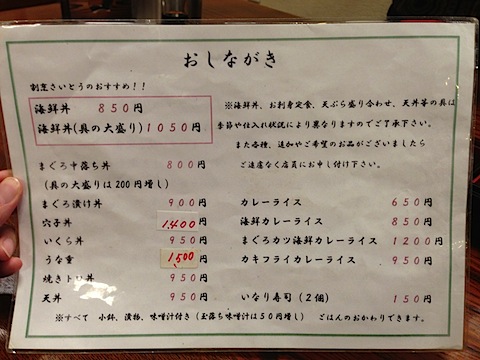 おしながき
割烹さいとうのおすすめ！！
海鮮丼 850円
海鮮丼(具の大盛り)1050円
※海鮮丼、お刺身定食、天ぷら盛り合わせ、天丼等の具は
季節や仕入れ状況により異なりますのでご了承下さい。
また各種、追加やご希望のお品がございましたら
ご遠慮なく店員にお申し付け下さい。
まぐろ中落ち丼 800円
(具の大盛りは200円増し)
まぐろ漬け丼 900円
穴子丼 1,400円
いくら丼 950円
うな重 1,500円
焼きトリ丼 950円
天丼 950円
カレーライス 650円
海鮮カレーライス 850円
まぐろカツ海鮮カレーライス 1200円
カキフライカレーライス 950円
いなり寿司(2個) 150円
※すべて 小鉢、漬物、味噌汁付き(玉落ち味噌汁は50円増し) ごはんのおかわりできます。